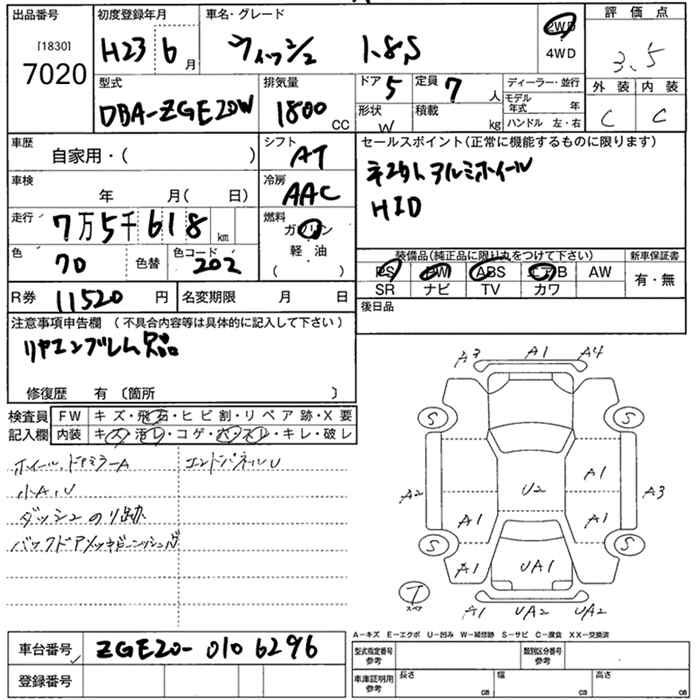 出品番号 初度登録年月 車名・グレード 2WD 評価点
[1830] H23 6月 ウィッシュ 1.8S 4WD 3.5
7020
型式 排気量 ドア 5 定員 7人 ディーラー・並行 外装 内装
DBA-ZGE20W 1800CC 形状 W 積載 kg モデル年式 年 C C
ハンドル 左・右
車歴 シフト セールスポイント(正常に機能するものに限ります)
自家用・( ) AT アルミホイール
車検 冷房 HID
年 月( 日) AAC
走行 燃料
7万5千618km ガソリン
軽油
( )
色 色替 色コード 装備品(純正品に限り丸をつけて下さい) 新車保証書
70 202 PS PW ABS エアB AW 有・無
SR ナビ TV カワ
R券 11520円 名変期限 月 日 後日品
注意事項申告欄 (不具合内容等は具体的に記入して下さい)
リヤエンブレム欠品
修復歴 有 〔箇所 〕
検査員 FW キズ・飛石・ヒビ割・リペア跡・X要
記入欄 内装 キズ・汚レ・コゲ・穴・スレ・キレ・破レ
ホイール、ドアミラーA エンドパネルU
小A、U
ダッシュのり跡
A3 A1 A4
S S
A1
A2 U2 A3
A1 A1
S S
A1 UA1
T
スペア
A1 UA2 UA2
A-キズ E-エクボ U-凹み W-補修跡 S-サビ C-腐食 XX-交換済
車台番号 ZGE20-0106296
型式指定番号 参考 類別区分番号 参考
車庫証明用 参考 長さ cm 幅 cm 高さ cm